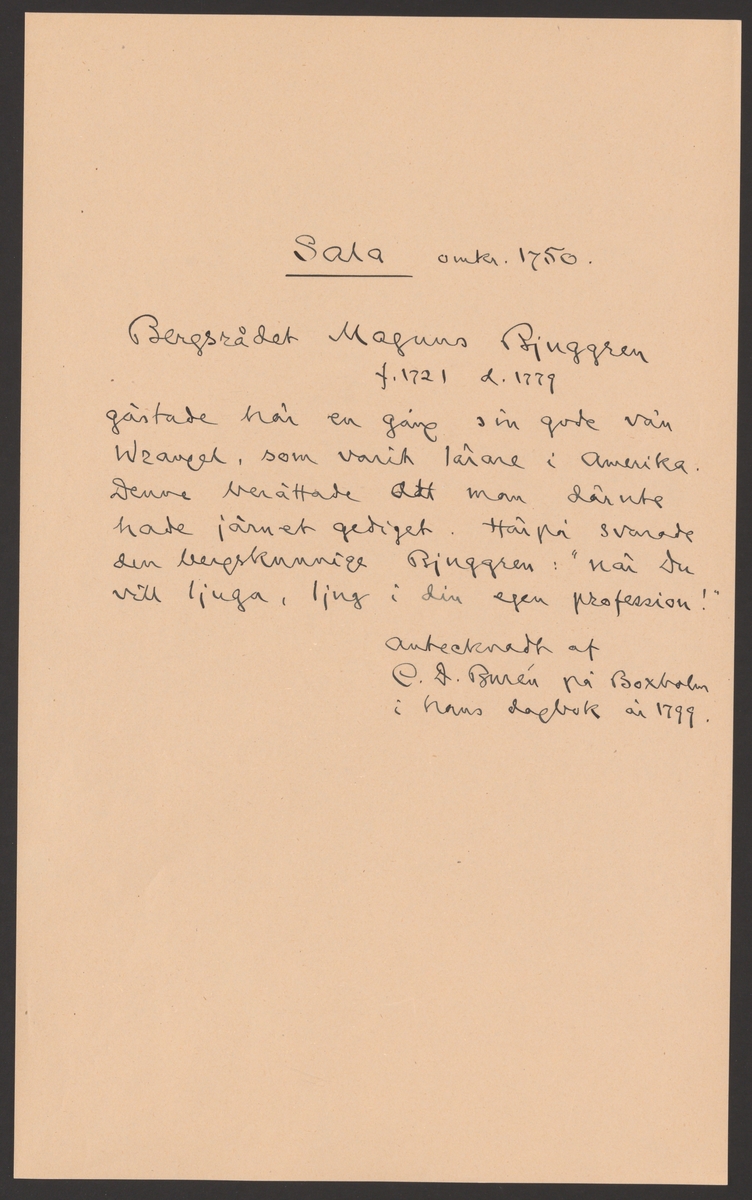 Sala omkr. 1750.
Bergsrådet Magnus Bjuggren
f. 1721 d. 1779
gästade här en gång sin gode vän
Wrangel, som varit lärare i Amerika.
Denne berättade att man därute
hade järnet gediget. Härpå svarade
den bergskunnige Bjuggren: "när Du
vill ljuga, ljug i din egen profession!"
Antecknadt af
C. D. Burén på Boxholm
i hans dagbok år 1799.